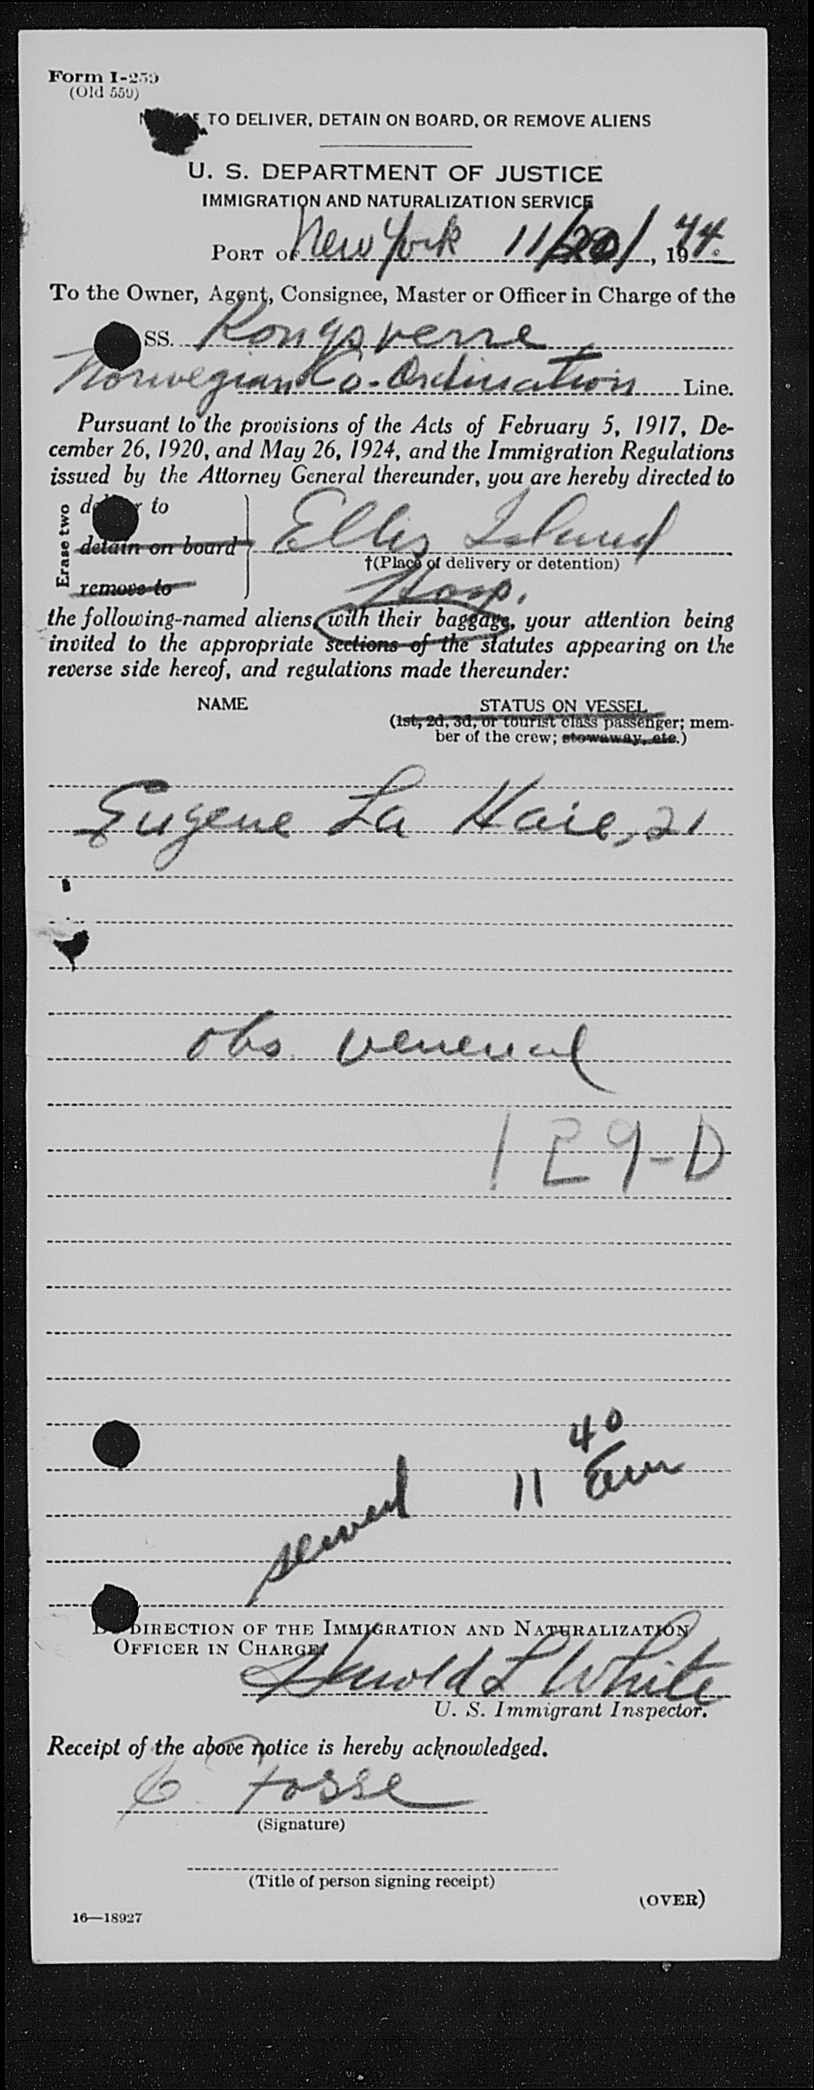 Form I-259
(Old 559)
TO DELIVER, DETAIN ON BOARD, OR REMOVE ALIENS
U. S. DEPARTMENT OF JUSTICE
IMMIGRATION AND NATURALIZATION SERVICE
PORT OF New York 11/20/, 1944.
To the Owner, Agent, Consignee, Master or Officer in Charge of the
SS. Kongsverre
Norwegian Co-Ordination Line.
Pursuant to the provisions of the Acts of February 5, 1917, De-
cember 26, 1920, and May 26, 1924, and the Immigration Regulations
issued by the Attorney General thereunder, you are hereby directed to
Erase two
to
detain on board
remove to
Ellis Island
†(Place of delivery or detention)
Hosp.
the following-named aliens, with their baggage, your attention being
invited to the appropriate sections of the statutes appearing on the
reverse side hereof, and regulations made thereunder:
NAME STATUS ON VESSEL
(1st, 2d, 3d, or tourist class passenger; mem-
ber of the crew; stowaway, etc.)
Eugene La Haie, 21
obs venereal
129-D
served 11 40 am
DIRECTION OF THE IMMIGRATION AND NATURALIZATION
OFFICER IN CHARGE:
Harold L White
U. S. Immigrant Inspector.
Receipt of the above notice is hereby acknowledged.
Fosse
(Signature)
(Title of person signing receipt)
(OVER)
16—18927